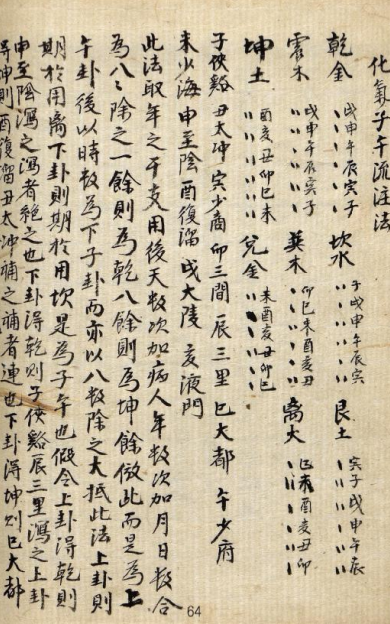 化氣子午流注法
乾金 戌申午辰寅子 坎水 子戌申午辰寅 艮土 寅子戌申午辰
震木 戌申午辰寅子 巽木 卯巳未酉亥丑 离火 巳未酉亥丑卯
坤土 酉亥丑卯巳未 兌金 未酉亥丑卯巳
子俠谿 丑太冲 寅少商 卯三間 辰三里 巳大都 午少府
未少海 申至陰 酉復溜 戌大陵 亥液門
此法取年之干支用後天数次加病人年数次加月日数合
為八八除之一餘則為乾八餘則為坤餘倣此而是為上
午卦後以時数為下子卦而亦以八数除之大抵此法上卦則
期於用离下卦則期於用坎是為子午也假令上卦得乾則
申至陰瀉之瀉者絶之也下卦得乾則子俠谿辰三里瀉之上卦
得坤則酉復溜丑太冲補之補者連也下卦得坤則巳大都
64